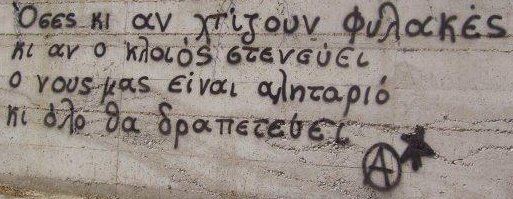 Όσες κι αν χτίζουν φυλακές
κι αν ο κλοιός στενεύει
ο νους μας είναι αληταριό
κι όλο θα δραπετεύει
Α